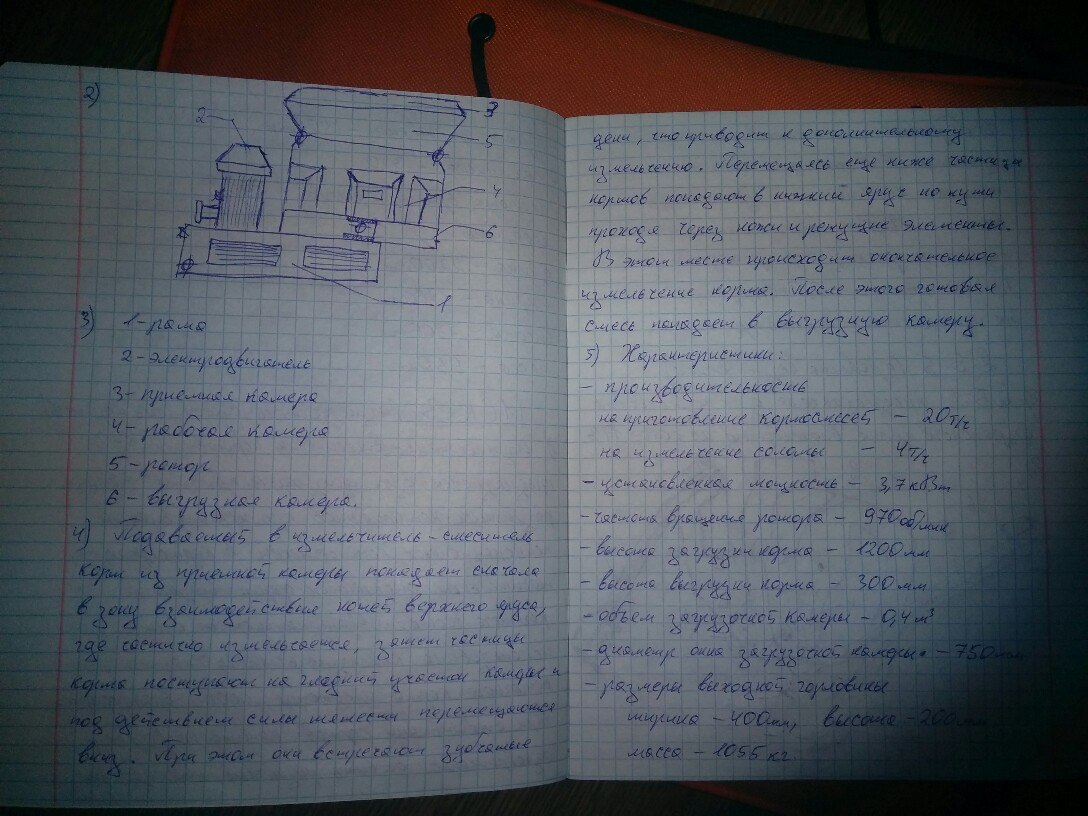 2)
2
3
5
4
6
1
3) 1-рама
2-электродвигатель
3-приемная камера
4-рабочая камера
5-ротор
6-выгрузная камера.
4) Подаваемый в измельчитель-смеситель
корм из приемной камеры попадает сначала
в зону взаимодействия ножей верхнего яруса,
где частично измельчается, затем частицы
корма поступают на гладкий участок камеры и
под действием силы тяжести перемещаются
вниз. При этом они встречают зубчатые
деки, что приводит к дополнительному
измельчению. Перемещаясь еще ниже частицы
кормов попадают в нижний ярус по пути
проходя через ножи и режущие элементы.
В этом месте происходит окончательное
измельчение корма. После этого готовая
смесь попадает в выгрузную камеру.
5) Характеристики:
- производительность
на приготовление кормосмесей - 20т/ч
на измельчение соломы - 4т/ч
- установленная мощность - 3,7кВт
- частота вращения ротора - 970об/мин
- высота загрузки корма - 1200мм
- высота выгрузки корма - 300мм
- объем загрузочной камеры - 0,4м³
- диаметр окна загрузочной камеры - 750мм
- размеры выходной горловины
ширина - 400мм, высота - 200мм
масса - 1055кг.